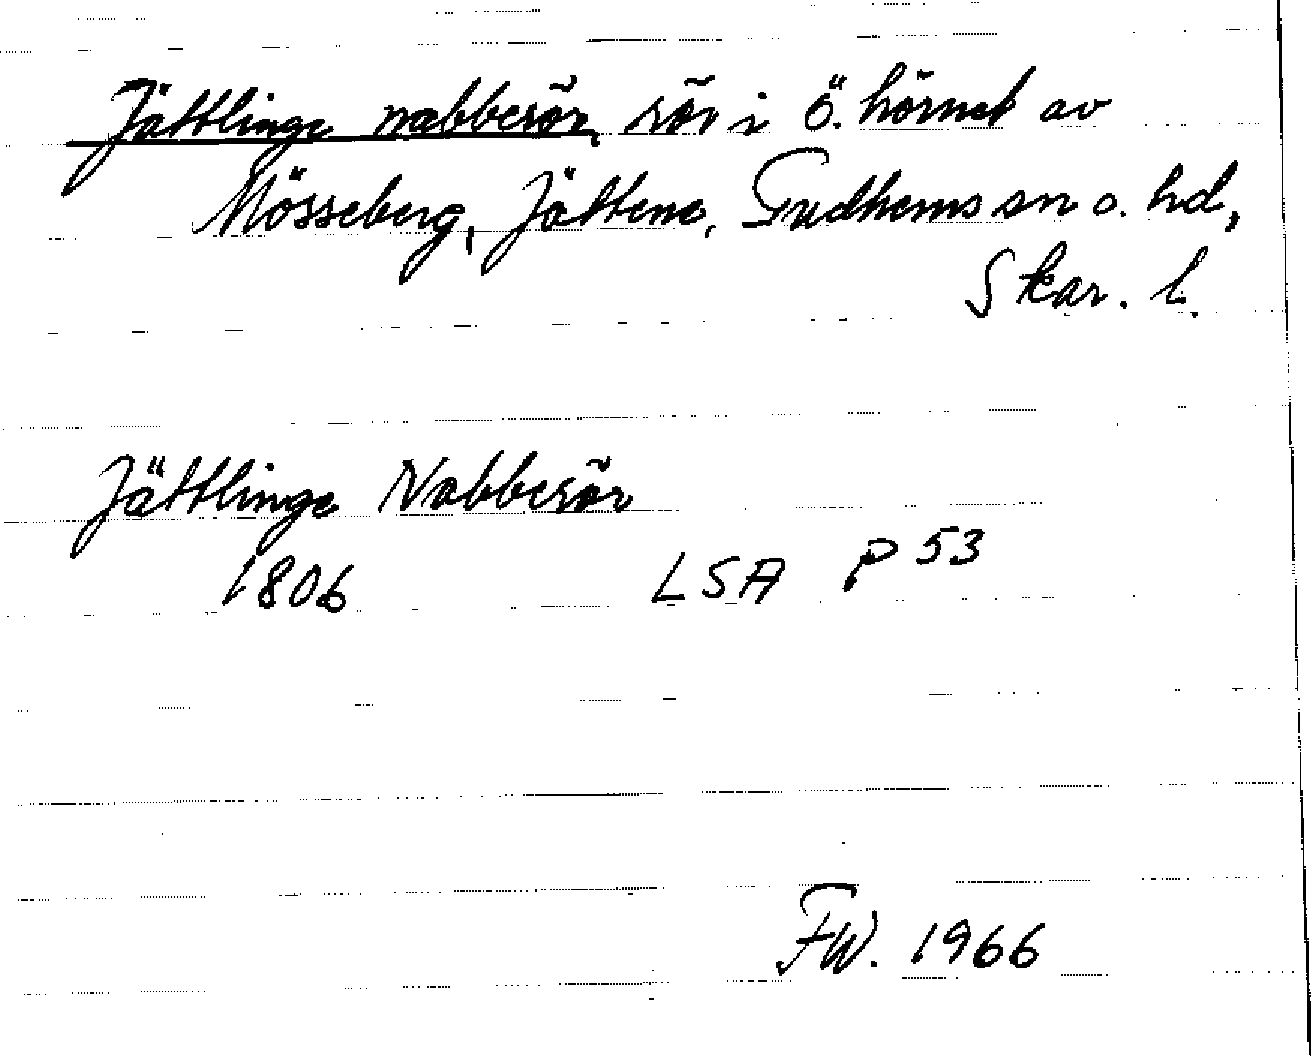 Jättlinge nabberör, rör i ö. hörnet av
Mösseberg, Jättene, Gudhems sn o. hd,
Skar. l.
Jättlinge Nabberör
1806 LSA P 53
FW. 1966